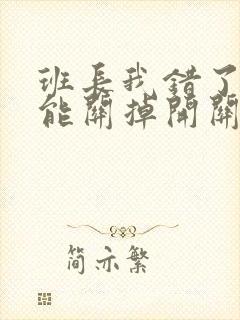 班长我错了
能關掉開關
简亦繁